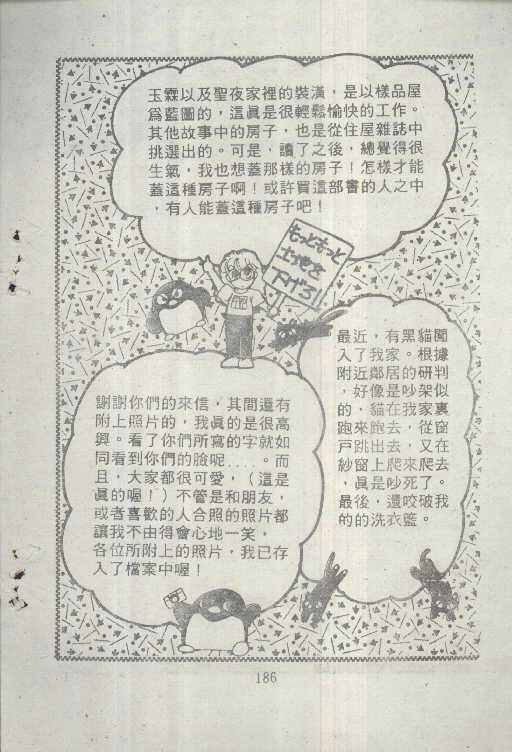 玉霖以及聖夜家裡的裝潢，是以樣品屋
為藍圖的，這眞是很輕鬆愉快的工作。
其他故事中的房子，也是從住屋雜誌中
挑選出的。可是，讀了之後，總覺得很
生氣，我也想蓋那樣的房子！怎樣才能
蓋這種房子啊！或許買這部書的人之中
，有人能蓋這種房子吧！
もっともっと
土地を
下げろ!!
最近，有黑貓闖
入了我家。根據
附近鄰居的研判
，好像是吵架似
的，貓在我家裏
跑來跑去，從窗
戶跳出去，又在
紗窗上爬來爬去
，眞是吵死了。
最後，還咬破我
的的洗衣籃。
謝謝你們的來信，其間還有
附上照片的，我眞的是很高
興。看了你們所寫的字就如
同看到你們的臉呢....。而
且，大家都很可愛，（這是
眞的喔！）不管是和朋友，
或者喜歡的人合照的照片都
讓我不由得會心地一笑，
各位所附上的照片，我已存
入了檔案中喔！
186